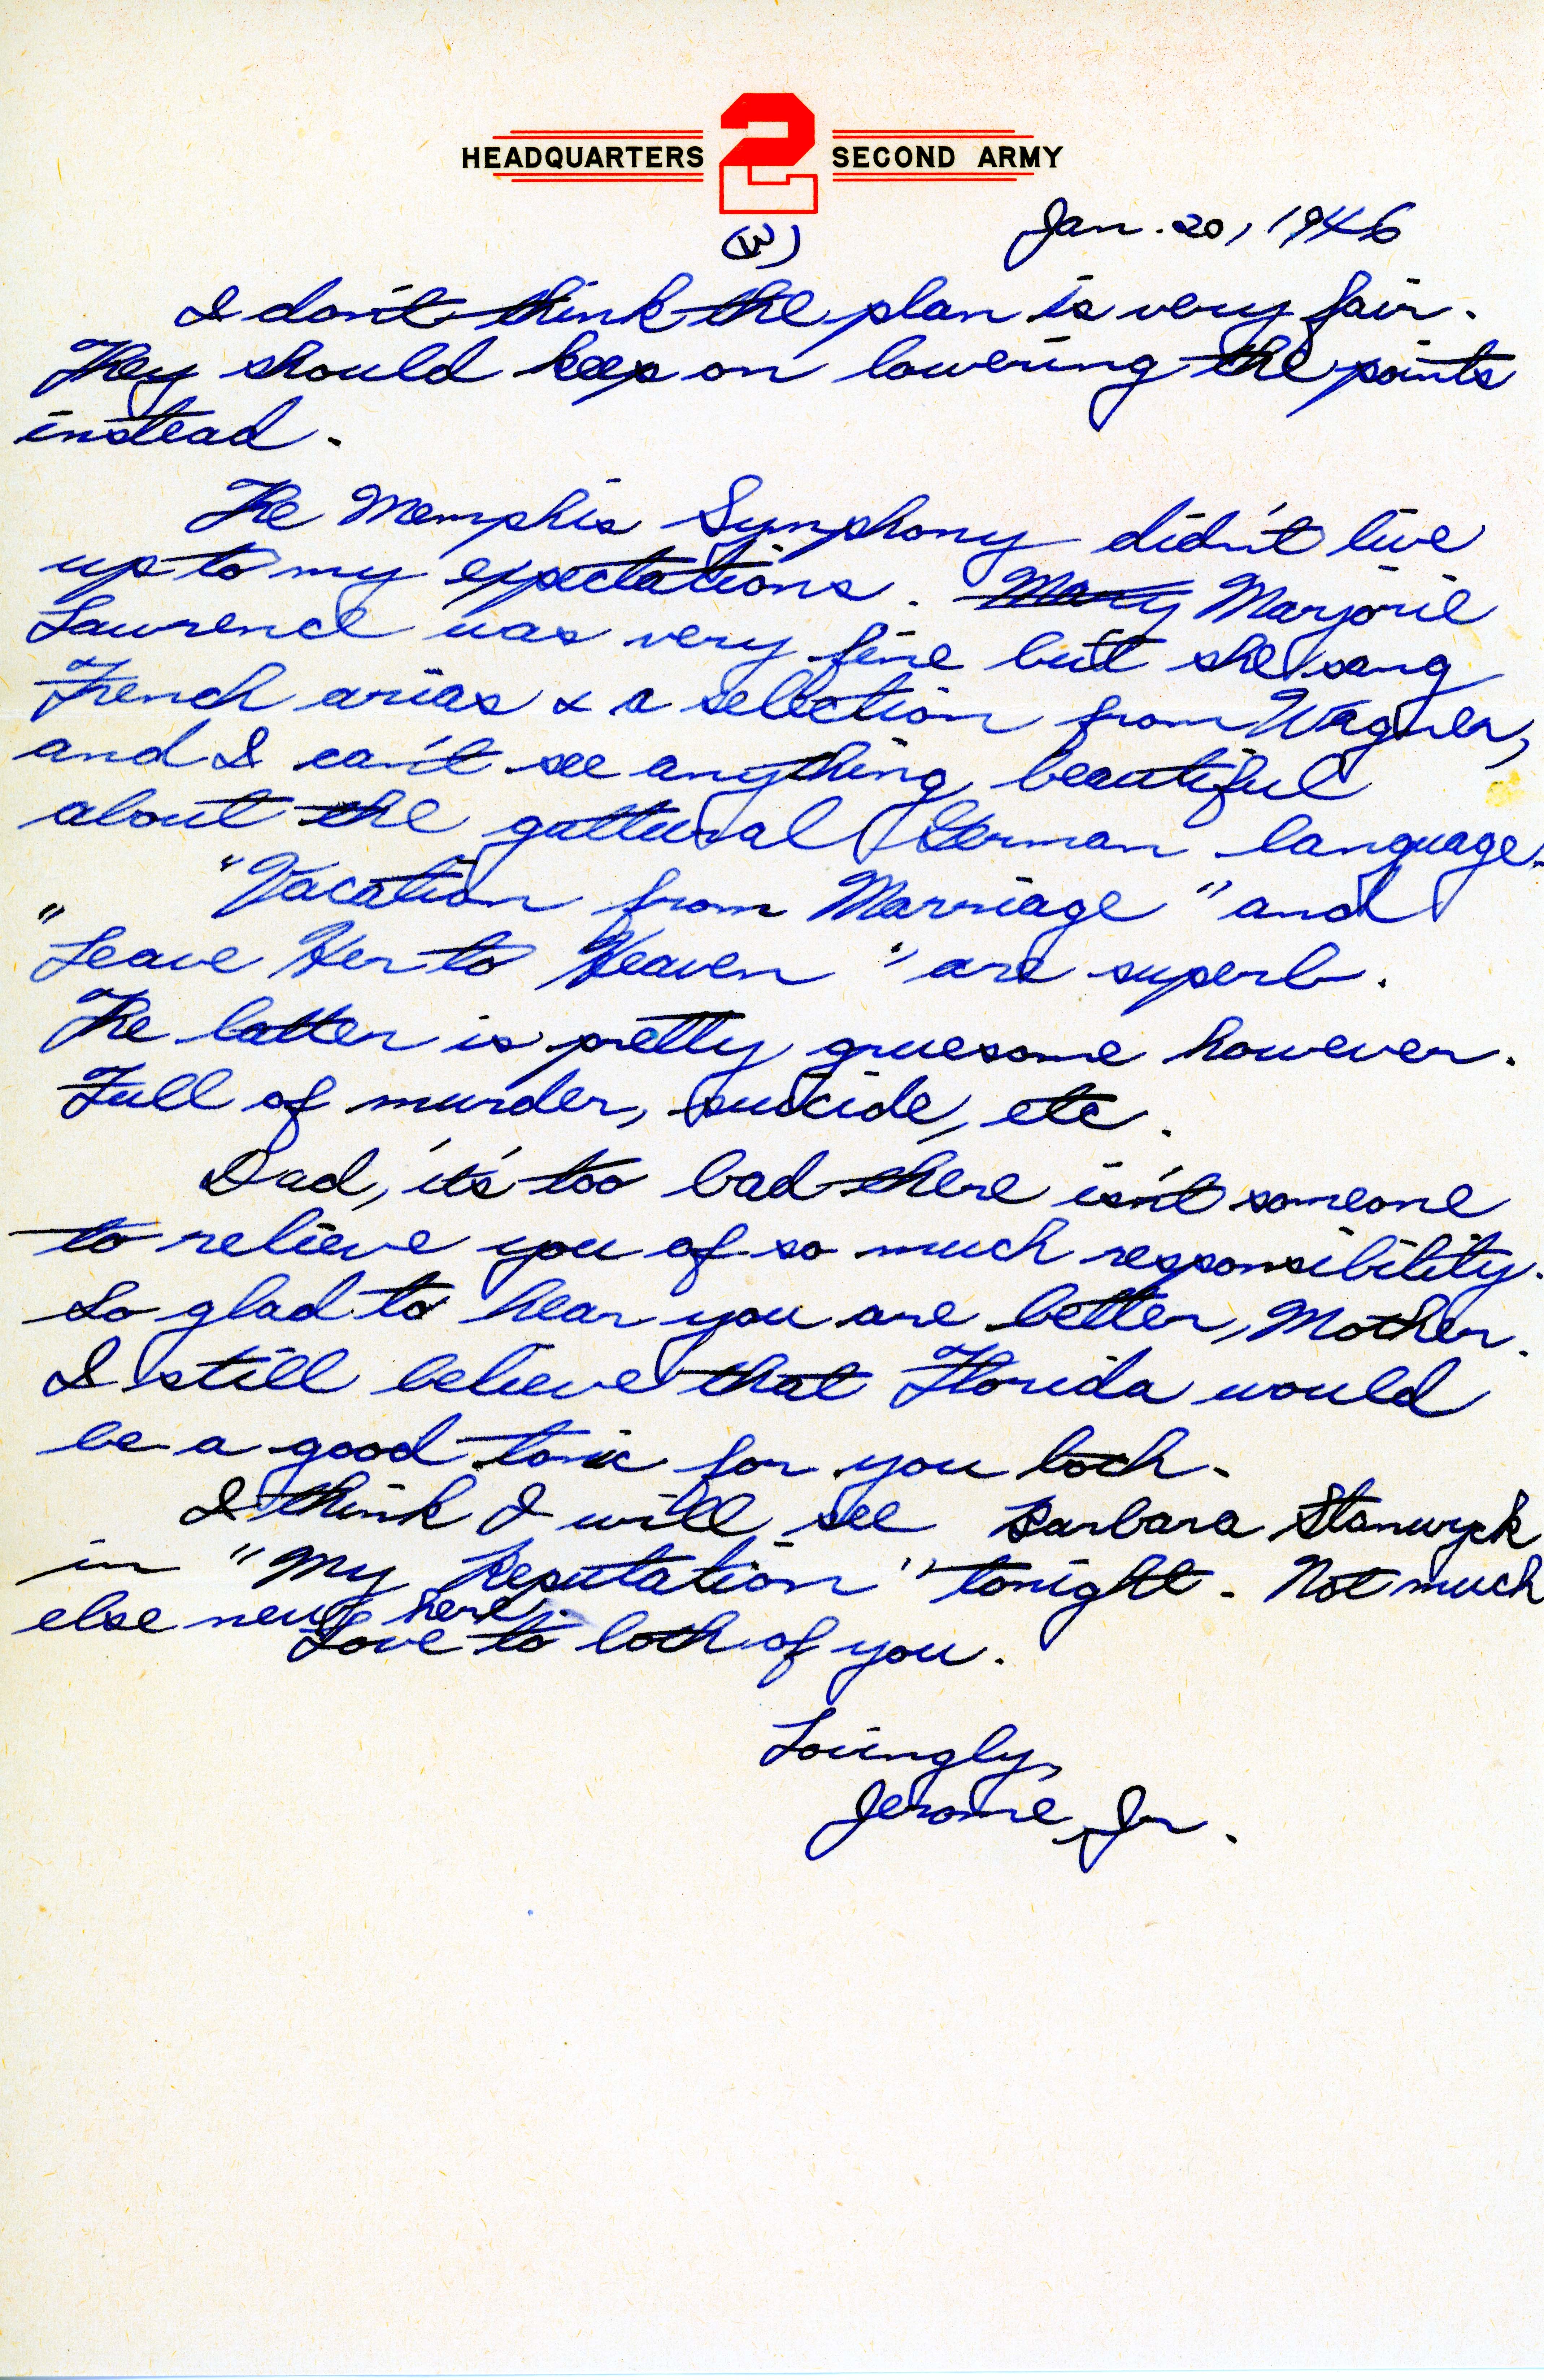 HEADQUARTERS 2 SECOND ARMY
(3)
Jan. 20, 1946
I don't think the plan is very fair.
They should keep on lowering the points
instead.
The Memphis Symphony didn't live
up to my expectations. Mary Marjorie
Lawrence was very fine but she sang
French arias & a selection from Wagner,
and I can't see anything beautiful
about the guttural German language.
"Vacation from Marriage" and
"Leave Her to Heaven" are superb.
The latter is pretty gruesome however.
Full of murder, suicide, etc.
Dad, it's too bad there isn't someone
to relieve you of so much responsibility.
So glad to hear you are better, Mother.
I still believe that Florida would
be a good tonic for you both.
I think I will see Barbara Stanwyck
in "My Reputation" tonight. Not much
else new here.
Love to both of you.
Lovingly,
Jerome, Jr.